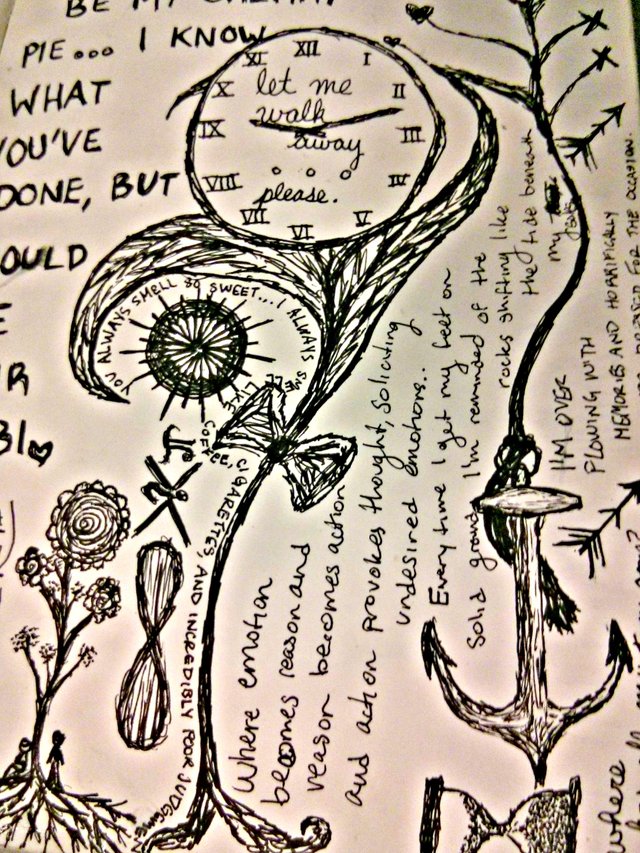 BE MY
PIE... I KNOW
WHAT
YOU'VE
DONE, BUT
OULD
XII
I
II
III
IV
V
VI
VII
VIII
IX
X
XI
let me
walk
away
please.
YOU ALWAYS SMELL SO SWEET... I ALWAYS SMELL LIKE COFFEE, CIGARETTES, AND INCREDIBLY POOR JUDGEMENT
Where emotion
becomes reason and
reason becomes action
and action provokes thought, soliciting
undesired emotions..
Every time I get my feet on
solid ground I'm reminded of the
rocks shifting like
the tide beneath
my
I'M OVER
FLOWING WITH
MEMORIES AND HORRIFICALLY
FOR THE OCCASION.
where